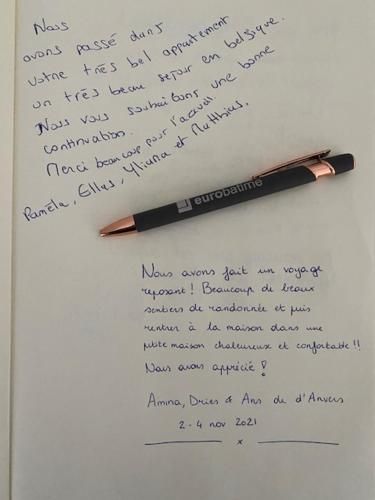 Nous
avons passé dans
votre très bel appartement
un très beau sejour en belgique.
Nous vous souhaitons une bonne
continuation.
Merci beaucoup pour l'accueil.
Paméla, Elias, Yliana et Matthias.
eurobatime
Nous avons fait un voyage
reposant! Beaucoup de beaux
sentiers de randonnée et puis
rentrer à la maison dans une
ptite maison chaleureux et confortable!!
Nous avons apprécié!
Amina, Dries & Ans de d'Anvers
2-4 nov 2021
x